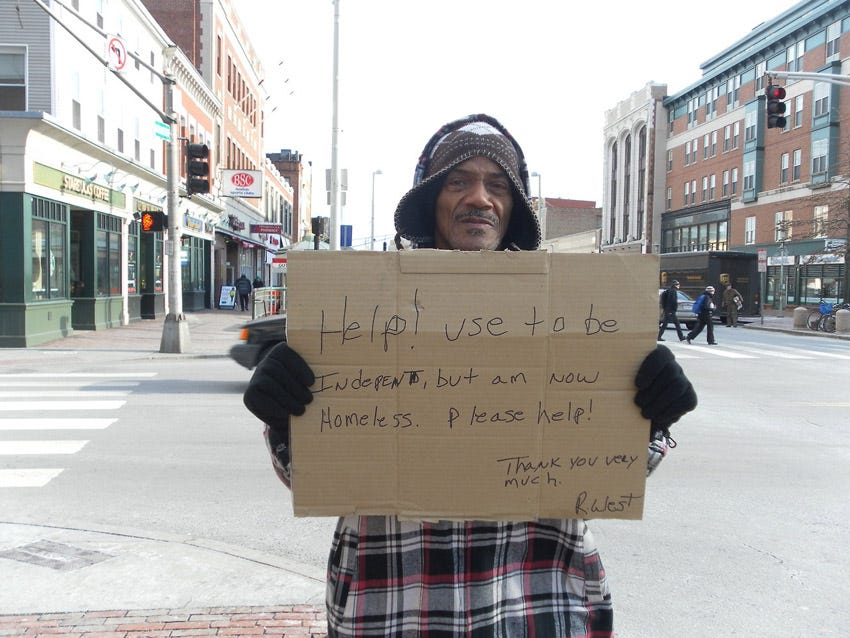 STARBUCKS COFFEE
BSC
Help! use to be
Indepent, but am now
Homeless. Please help!
Thank you very
much.
R West